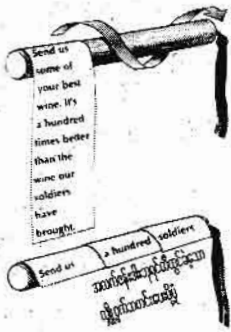 Send us
some of
your best
wine. It's
a hundred
times better
than the
wine our
soldiers
have
brought.
Send us a hundred soldiers